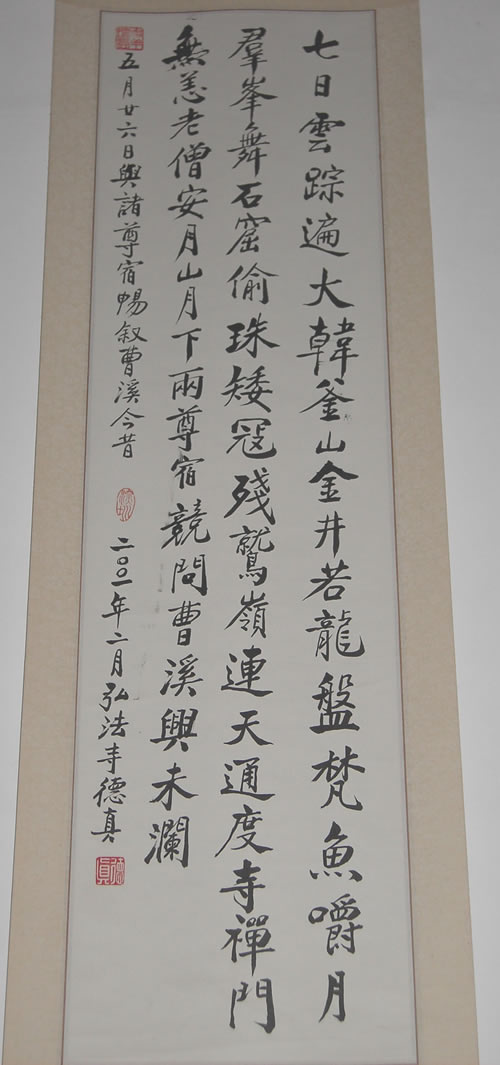 七日雲踪遍大韓釜山金井若龍盤梵魚嚼月
羣峯舞石窟偷珠矮冦殘鷲嶺連天通度寺禪門
無恙老僧安月山月下兩尊宿競問曹溪興未瀾
五月廿六日與諸尊宿暢叙曹溪今昔
二〇〇一年二月弘法寺德真